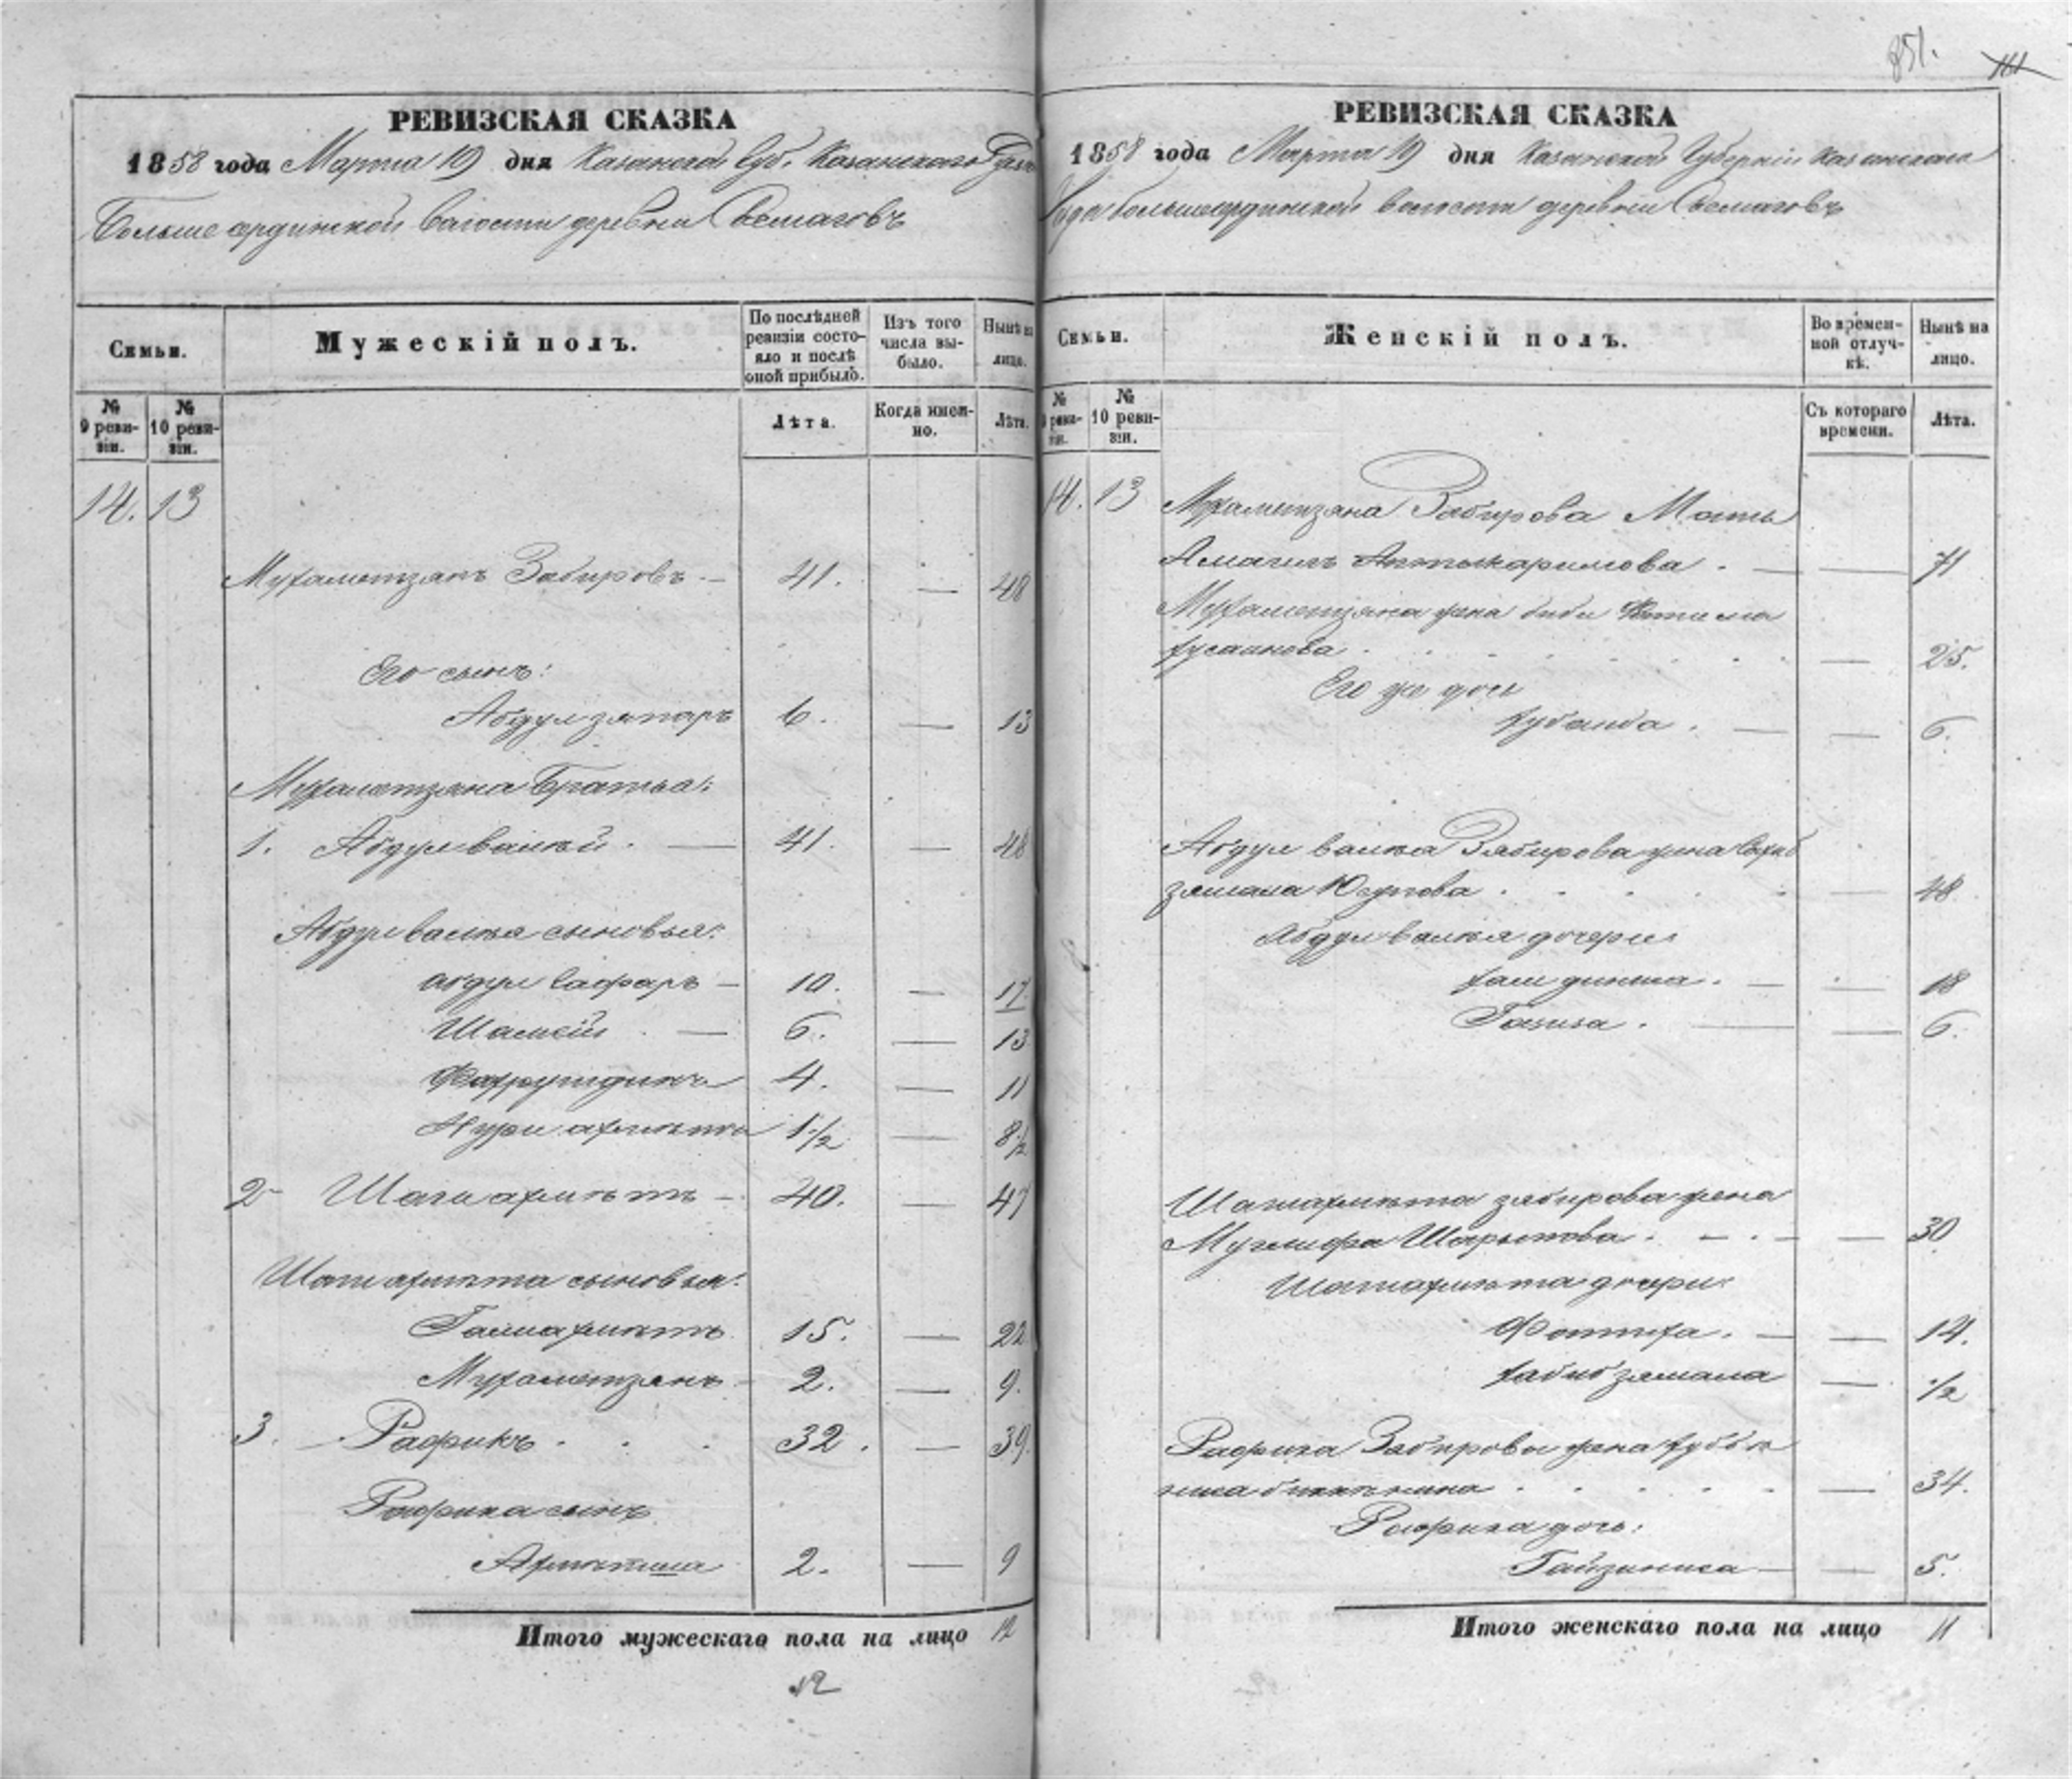 851.
РЕВИЗСКАЯ СКАЗКА
1858 года Марта 19 дня Казанской Губ. Казанского Уезда
Больше ординской волости деревни
Семьи.
Мужескій полъ.
По послѣдней ревизіи состояло и послѣ оной прибыло.
Изъ того числа выбыло.
Нынѣ на лицо.
№ 9 ревизіи.
№ 10 ревизіи.
Лѣта.
Когда именно.
Лѣта.
14. 13
Мухаметзянъ Забировъ — 41. — 48
Его сынъ:
Абдулзяпаръ 6. — 13
Мухаметзяна Братья:
1. Абдулвалѣй. — 41. — 48
Абдулвалѣя сыновья:
абдул Сафаръ — 10. — 17
Шамсій . — 6. — 13
Фахрутдинъ 4. — 11
Нури ахмѣтъ 1 1/2 — 8 1/2
2 Шагиахмѣтъ — 40. — 47
Шагиахмѣта сыновья:
Галиахмѣтъ 15. — 22
Мухаметзянъ 2. — 9.
3. Рафикъ . . . 32. — 39.
Рафика сынъ
Ахмѣтша 2. — 9
Итого мужескаго пола на лицо 12
12
РЕВИЗСКАЯ СКАЗКА
1858 года Марта 19 дня Казанской Губерніи Казанскаго
Уезда большеординской волости деревни
Семьи.
Женскій полъ.
Во временной отлучкѣ.
Нынѣ на лицо.
№ 9 ревизіи.
№ 10 ревизіи.
Съ котораго времени.
Лѣта.
14. 13 Мухаметзяна Забирова Мать
Аптыкаримова . — — 71
Мухаметзяна жена биби Фатима
хусаинова . — 25.
Его же дочь
хубаида . — — 6.
Абдул валѣя Забирова жена
зямала Юсупова . — 48
Абдулвалѣя дочери:
. — — 18
Газиза . — — 6.
Шагиахмѣта забирова жена
Шарыпова . — — 30
Шагиахмѣта дочери:
Фатиха . — — 14.
хабибзямала — 1/2
Рафика Забирова жена
— 34.
Рафика дочь:
Гайзиниса — — 5.
Итого женскаго пола на лицо 11